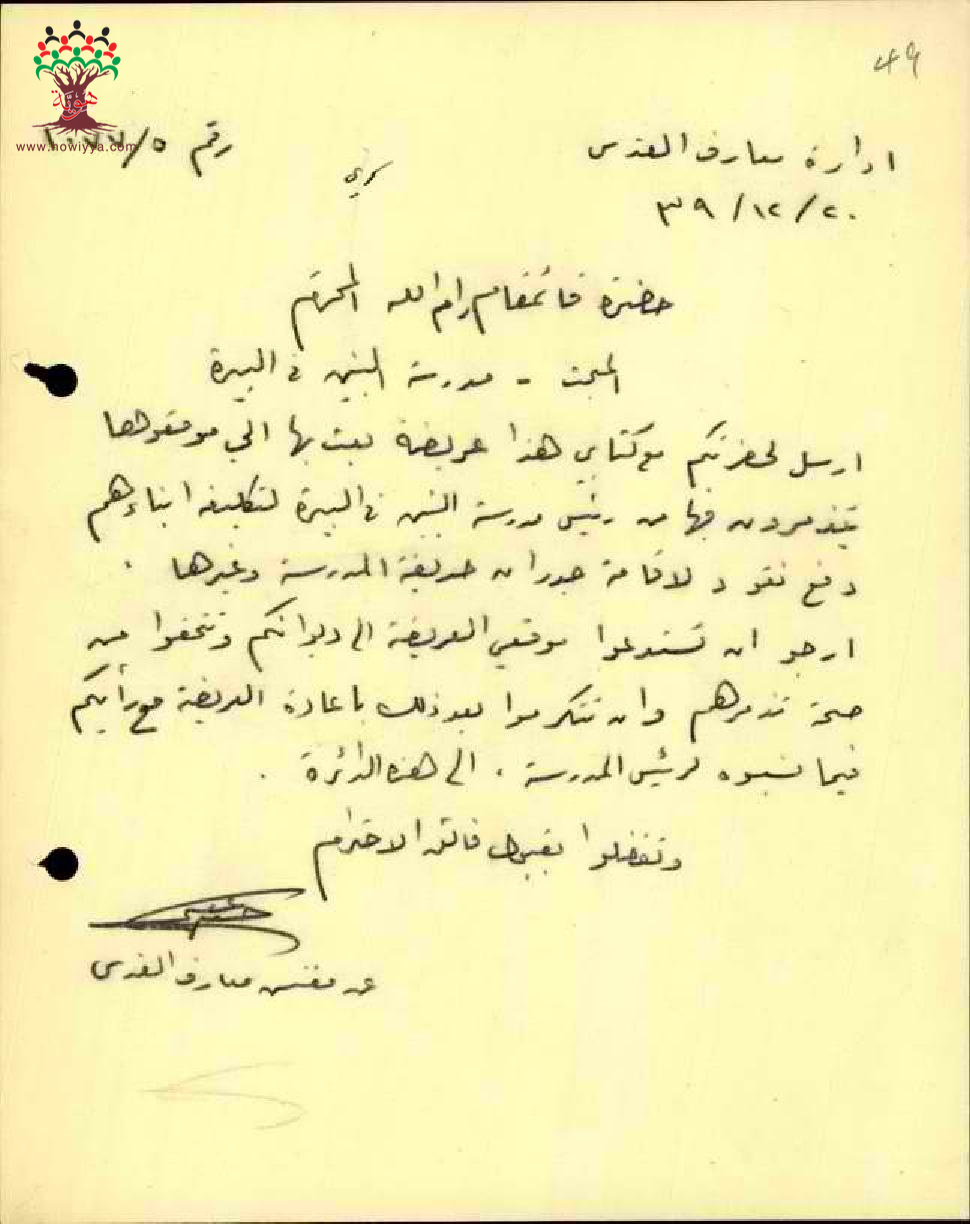 49
ادارة معارف القدس
رقم ١٠٧٧/٥
٢٠/١٢/٣٩
سري
حضرة قائمقام رام الله المحترم
المبحث - مدرسة البنين في البيرة
ارسل لحضرتكم مع كتابي هذا عريضة بعث بها الي موقعوها
يتذمرون فيها من رئيس مدرسة البنين في البيرة لتكليفه ابناءهم
دفع نقود لاقامة جدران حديقة المدرسة وغيرها .
ارجو ان تستدعوا موقعي العريضة الى ديوانكم وتتحققوا من
صحة تذمرهم وان تتكرموا بعد ذلك باعادة العريضة مع رأيكم
فيما نسبوه لرئيس المدرسة . الى هذه الدائرة .
وتفضلوا بقبول فائق الاحترام
عن مفتش معارف القدس
هوية
www.howiyya.com